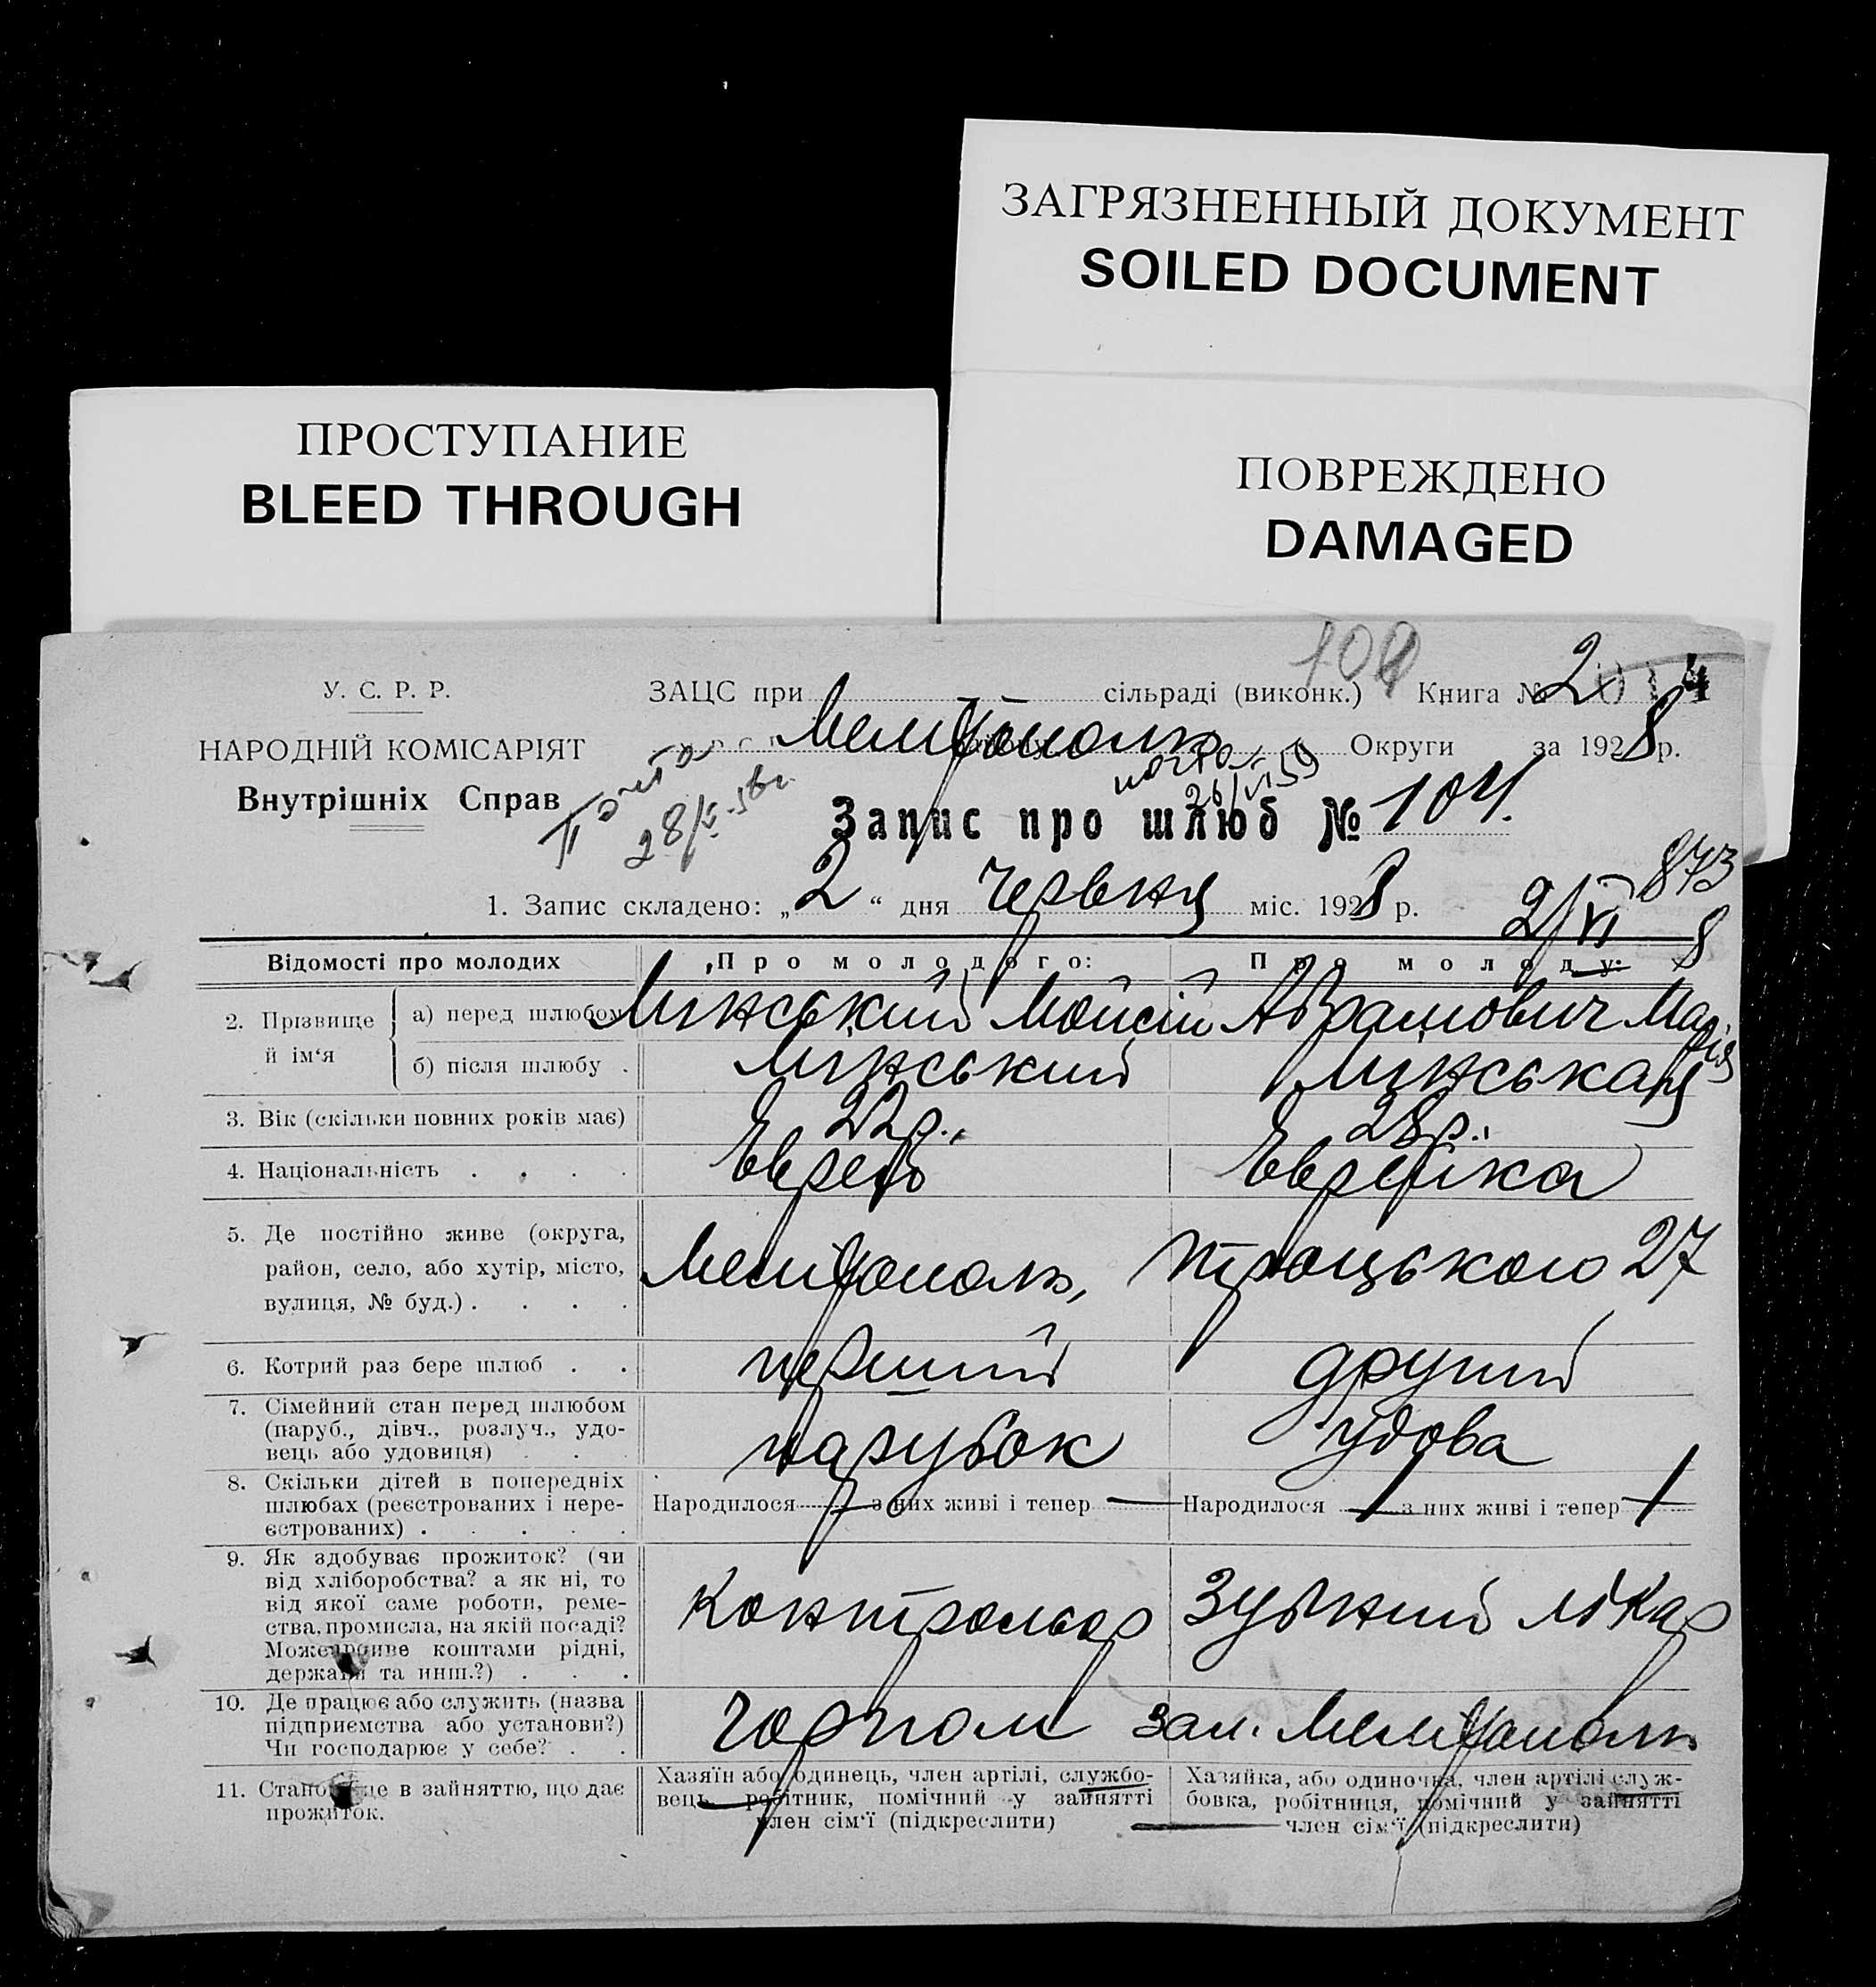 ЗАГРЯЗНЕННЫЙ ДОКУМЕНТ
SOILED DOCUMENT
ПРОСТУПАНИЕ
BLEED THROUGH
ПОВРЕЖДЕНО
DAMAGED
У. С. Р. Р.
НАРОДНІЙ КОМІСАРІЯТ
Внутрішніх Справ
ЗАЦС при сільраді (виконк.) Книга № 2
Мелітополь Округи за 1928 р.
28/V-56г.
26/VI 59
Запис про шлюб № 104.
873
1. Запис складено: „ 2 “ дня Червня міс. 1928 р.
2/VI 8
Відомості про молодих Про молодого: Про молоду:
2. Прізвище й ім‘я
а) перед шлюбом Мінський Мойсій Абрамович Марія
б) після шлюбу . Мінський Мінська
3. Вік (скільки повних років має) 22 р., 28 р.,
4. Національність . . . . Еврей Еврейка
5. Де постійно живе (округа, район, село, або хутір, місто, вулиця, № буд.) . . . . Мелітополь, Троцького 27
6. Котрий раз бере шлюб . . перший другий
7. Сімейний стан перед шлюбом (паруб., дівч., розлуч., удовець або удовиця) . . парубок удова
8. Скільки дітей в попередніх шлюбах (реєстрованих і нереєстрованих) . . . . . Народилося — з них живі і тепер — Народилося 1 з них живі і тепер 1
9. Як здобуває прожиток? (чи від хліборобства? а як ні, то від якої саме роботи, ремества, промисла, на якій посаді? Може живе коштами рідні, держави та инш.?) . . . Контрольор Зубний лікар
10. Де працює або служить (назва підприємства або установи?) Чи господарює у себе? . . Мелітополь
11. Становище в зайняттю, що дає прожиток.
Хазяїн або одинець, член артілі, службовець, робітник, помічний у зайнятті член сім‘ї (підкреслити)
Хазяйка, або одиночка, член артілі службовка, робітниця, помічний у зайнятті член сім‘ї (підкреслити)